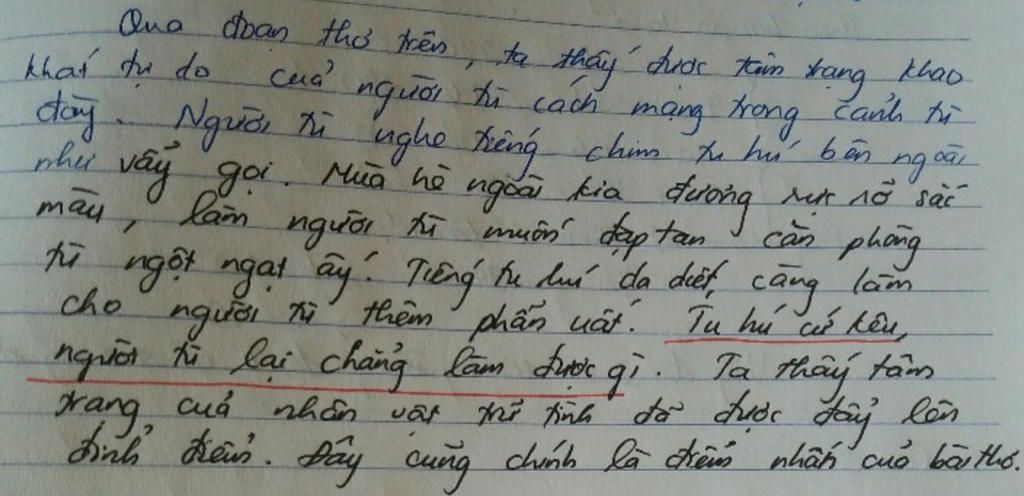 Qua đoạn thơ trên, ta thấy được tâm trạng khao
khát tự do của người tù cách mạng trong cảnh tù
đày. Người tù nghe tiếng chim tu hú bên ngoài
như vẫy gọi. Mùa hè ngoài kia đương rực rỡ sắc
màu, làm người tù muốn đạp tan căn phòng
tù ngột ngạt ấy. Tiếng tu hú da diết, càng làm
cho người tù thêm phẫn uất. Tu hú cứ kêu,
người tù lại chẳng làm được gì. Ta thấy tâm
trạng của nhân vật trữ tình đã được đẩy lên
đỉnh điểm. Đây cũng chính là điểm nhấn của bài thơ.